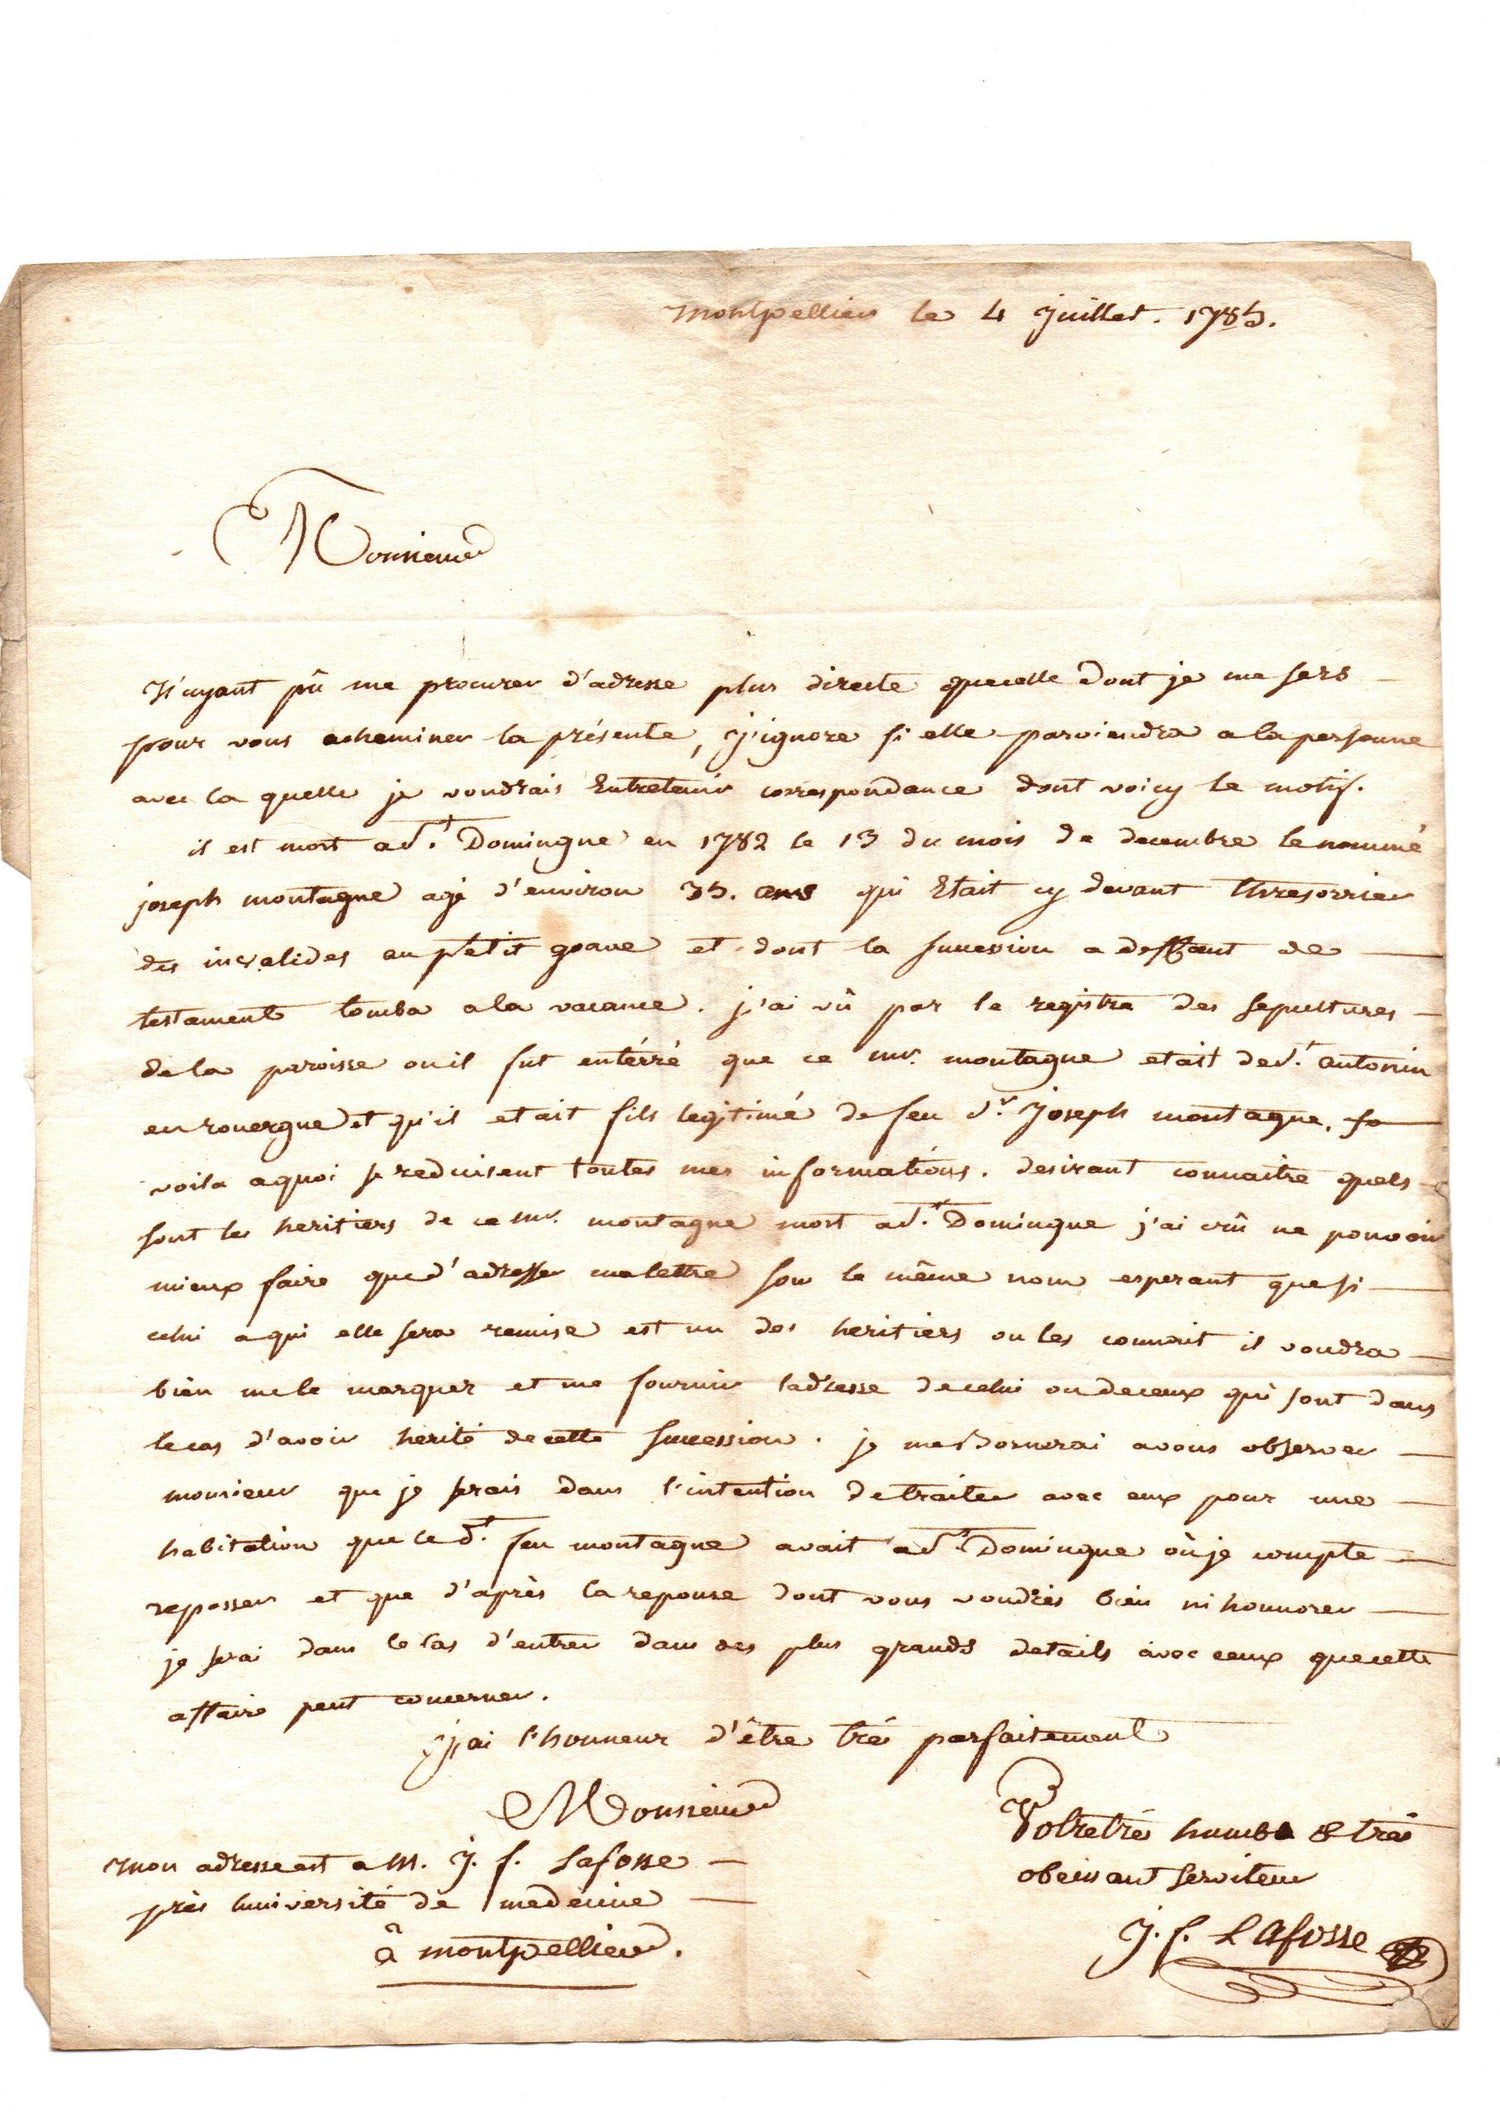 Montpellier le 4 Juillet. 1785.
Monsieur
N'ayant pû me procurer d'adresse plus directe que celle dont je me sers
pour vous acheminer la présente, J'ignore si elle parviendra a la personne
avec la quelle je voudrais Entretenir correspondance dont voicy le motif.
il est mort a St. Domingue en 1782 le 13 du mois de decembre le nommé
joseph montagne agé d'environ 35. ans qui Etait cy devant thresorrier
des invalides au petit goave et dont la succession a deffaut de
testament tomba a la vacance. j'ai vû par le registre des sepultures
de la paroisse ou il fut entérré que ce mr. montagne etait de St. antonin
en rouergue et qu'il etait fils legitimé de feu Sr. Joseph montagne.
voila a quoi se reduisent toutes mes informations. desirant connaitre quels
sont les heritiers de ce mr. montagne mort a St. Domingue j'ai crû ne pouvoir
mieux faire que d'adresser ma lettre sou le même nom esperant que si
celui a qui elle sera remise est un des heritiers ou les connait il voudra
bien me le marquer et me fournir l'adresse de celui ou de ceux qui sont dans
le cas d'avoir herité de cette succession. je me bornerai a vous observer
monsieur que je serais dans l'intention de traiter avec eux pour une
habitation que le dt. feu montagne avait a St. Domingue où je compte
repasser et que d'après la reponse dont vous voudrés bien m'honnorer
je serai dans le cas d'entrer dans des plus grands details avec ceux que cette
affaire peut concerner.
j'ai l'honneur d'être tré parfaitement
Monsieur
Votre tré humble & tré
obeissant serviteur
J. f. Lafosse
mon adresse est a M. J. f. Lafosse
près luniversité de medecine
â montpellier.